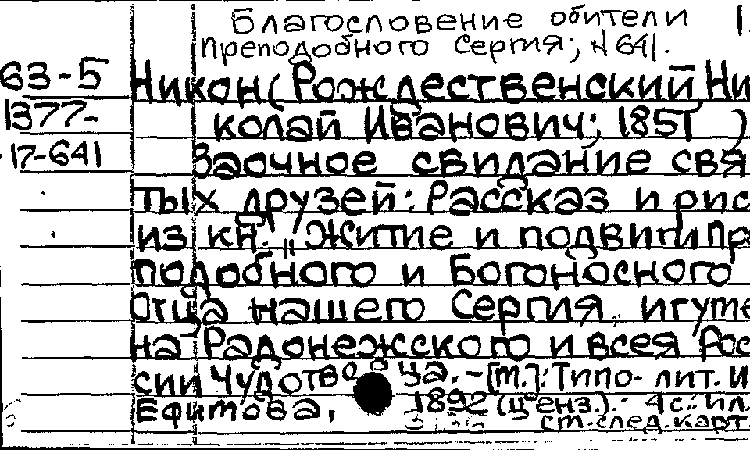 Благословение обители
Преподобного Сергия; № 641.
63-5 Никон (Рождественский Ни
1377- колай Иванович; 1851 )
17-641 Заочное свидание свя
тых друзей: Рассказ и рис
из кн. "Житие и подвиги пр
подобного и Богоносного
отца нашего Сергия, игуме
на Радонежского и всея Рос
сии Чудотворца. - [М.]: Типо-лит. И
Ефимова, 1892 (ценз.). 4 с.: ил.
см. след. карт